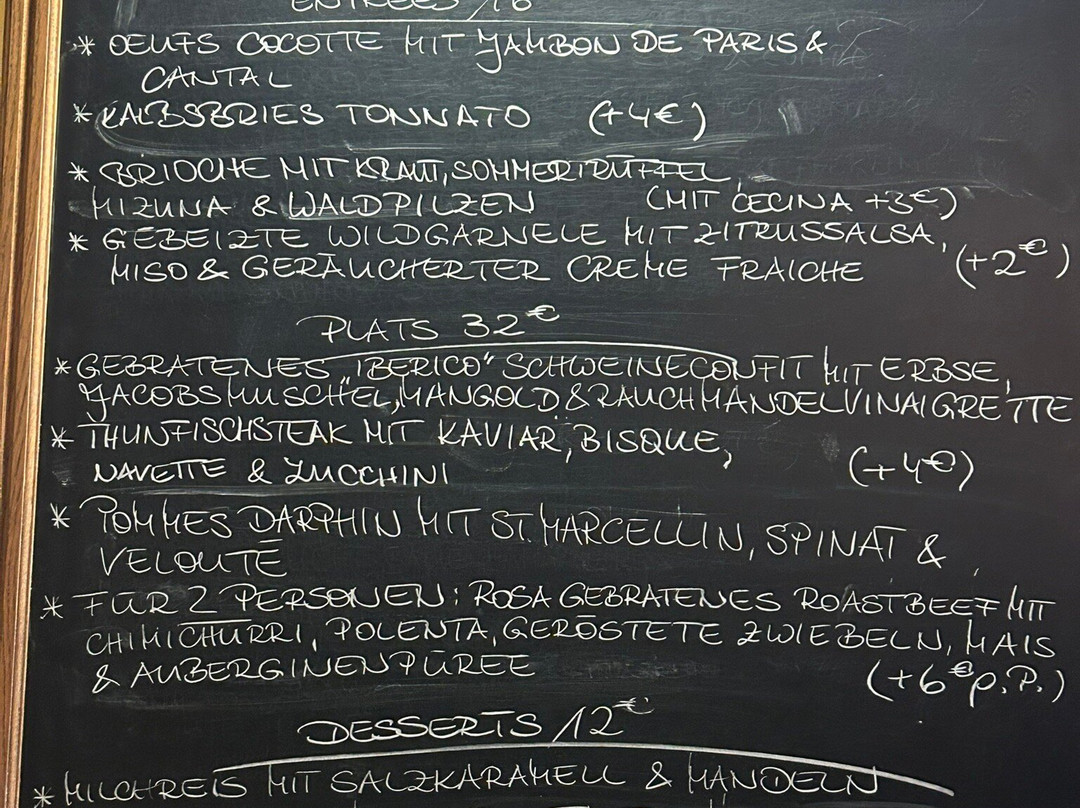 ENTRÉES /16
* OEUFS COCOTTE MIT JAMBON DE PARIS &
CANTAL
* KALBSBRIES TONNATO (+4€)
* BRIOCHE MIT KRAUT, SOMMERTRÜFFEL,
MIZUNA & WALDPILZEN (MIT CECINA +3€)
* GEBEIZTE WILDGARNELE MIT ZITRUSSALSA,
MISO & GERÄUCHERTER CREME FRAICHE (+2€)
PLATS 32€
* GEBRATENES „IBERICO“ SCHWEINECONFIT MIT ERBSE,
JACOBSMUSCHEL, MANGOLD & RAUCHMANDELVINAIGRETTE
* THUNFISCHSTEAK MIT KAVIAR, BISQUE,
NAVETTE & ZUCCHINI (+4€)
* POMMES DARPHIN MIT ST. MARCELLIN, SPINAT &
VELOUTÉ
* FÜR 2 PERSONEN: ROSA GEBRATENES ROASTBEEF MIT
CHIMICHURRI, POLENTA, GERÖSTETE ZWIEBELN, MAIS
& AUBERGINENPÜREE (+6€ p.P.)
DESSERTS /12€
* MILCHREIS MIT SALZKARAMELL & MANDELN